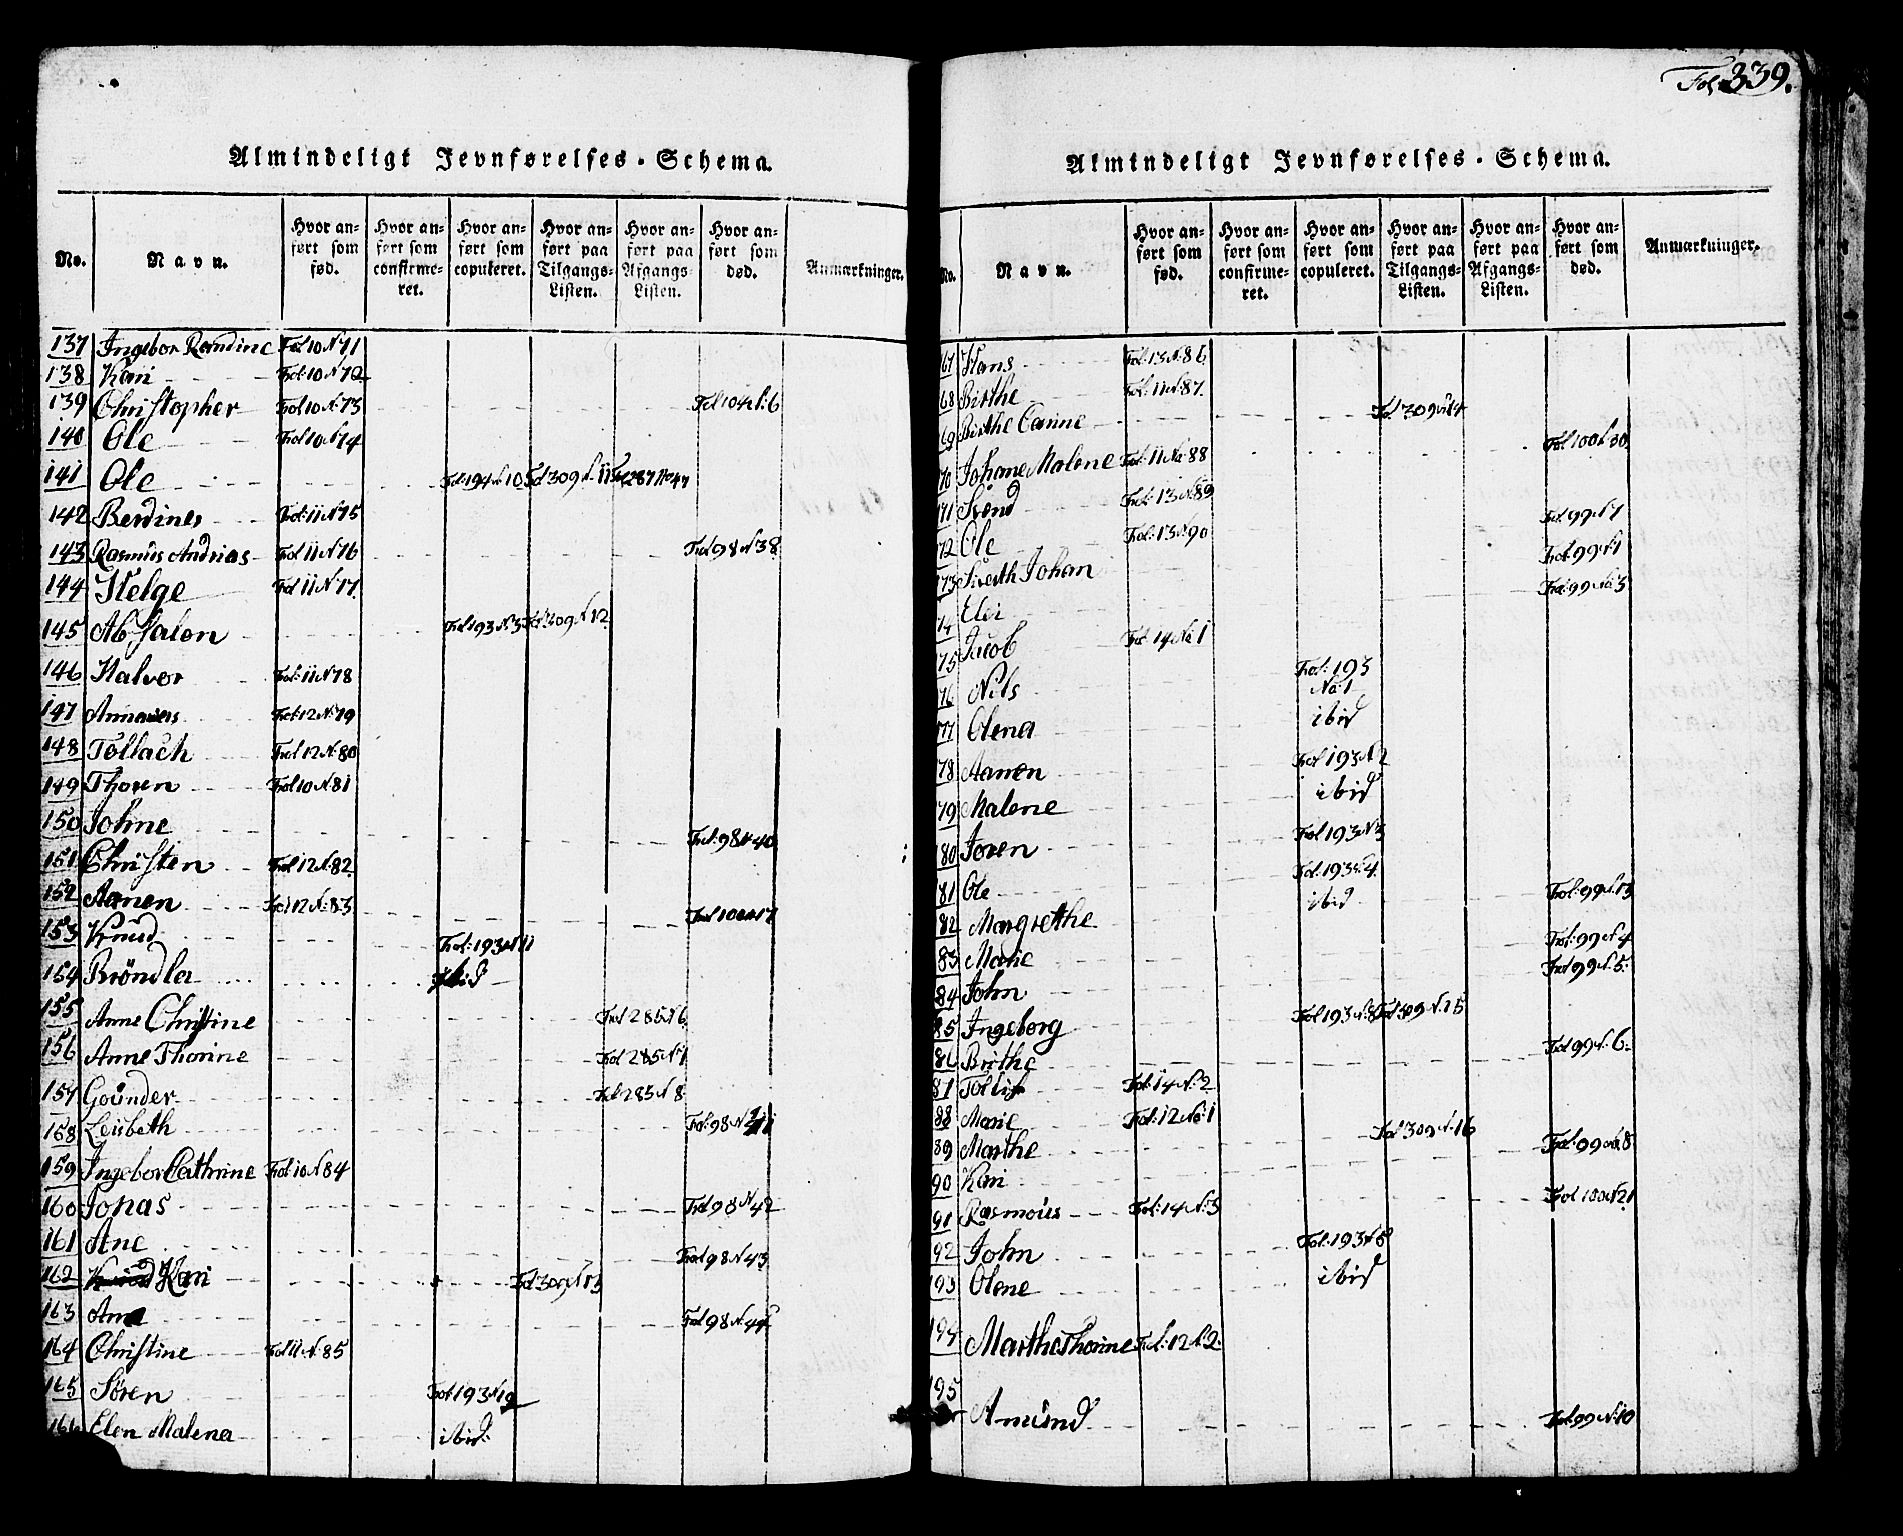 Fol: 339.
Almindeligt Jevnførelses-Schema.
No. Navn. Hvor anført som fød. Hvor anført som confirmeret. Hvor anført som copuleret. Hvor anført paa Tilgangs-Listen. Hvor anført paa Afgangs-Listen. Hvor anført som død. Anmærkninger.
137 Ingebor Randine Fol 10 N 71
138 Kari Fol: 10 N 72
139 Christopher Fol 10 N: 73 Fol 104 N: 6
140 Ole Fol 10 N 74
141 Ole Fol: 194 N 10 Fol 309 N. 11 Fol 287 No 47
142 Berdines Fol: 11 N 75
143 Rasmus Andrias Fol 11 N 76 Fol 98 N 38
144 Helge Fol 11 N. 77
145 Absalon Fol 193 N. 3 Fol 309 N 12
146 Halvor Fol: 11 N 78
147 Fol: 12 N: 79
148 Tollach Fol 12 N. 80
149 Thoren Fol 10 N. 81
150 Johne Fol: 98 N 40
151 Christen Fol 12 N. 82
152 Aanen Fol 12 N: 83
153 Knud Fol: 193 N 11
154 Bröndla ibid
155 Anne Christine Fol 285 N 6
156 Anne Thorine Fol 285 N 7
157 Gounder Fol: 285 N 8
158 Leisbeth Fol: 98 N 41
159 Ingebor Cathrine Fol 10 N 84
160 Jonas Fol 98 N 42
161 Ane Fol 98 N 43
162 Kari Fol 309 N 13
163 Ane Fol 98 N. 44
164 Christine Fol 11 N. 85
165 Sören Fol 193 N 12
166 Elen Malena ibid:
Almindeligt Jevnførelses-Schema.
No. Navn. Hvor anført som fød. Hvor anført som confirmeret. Hvor anført som copuleret. Hvor anført paa Tilgangs-Listen. Hvor anført paa Afgangs-Listen. Hvor anført som død. Anmærkninger.
67 Hans Fol: 13 N: 86
68 Birthe Fol: 11 N: 87.
69 Birthe Carine Fol 309 N 14
70 Johane Malene Fol: 11 No: 88 Fol: 100 N. 20
71 Svend Fol: 13 N: 89
72 Ole Fol: 13 N. 90 Fol. 99 N 1
73 Siverth Johan
74 Elei Fol: 99 No 3
75 Jacob Fol: 14 No 1
76 Nils Fol: 193 No: 1
77 Olena ibid
78 Aanen Fol 193 N 2
79 Malene ibid
80 Joren Fol 193 N 3
81 Ole Fol: 193 N. 4
82 Margrethe ibid Fol: 99 N. 13
83 Marie Fol: 99 N. 4
84 John Fol 99 N. 5
85 Ingeborg Fol 193 N. 8 Fol 309 N. 15
86 Birthe Fol 99 N. 6
87 Fol: 14 N. 2
88 Marie Fol: 12 No: 1
89 Marthe Fol 309 N. 16 Fol: 99 No 8
90 Kari Fol 100 N 21
91 Rasmous Fol: 14 N: 3
92 John Fol: 193 N 5
193 Olene ibid
194 Marthe Thorine Fol: 12 N. 2
195 Amund Fol: 99 N. 10